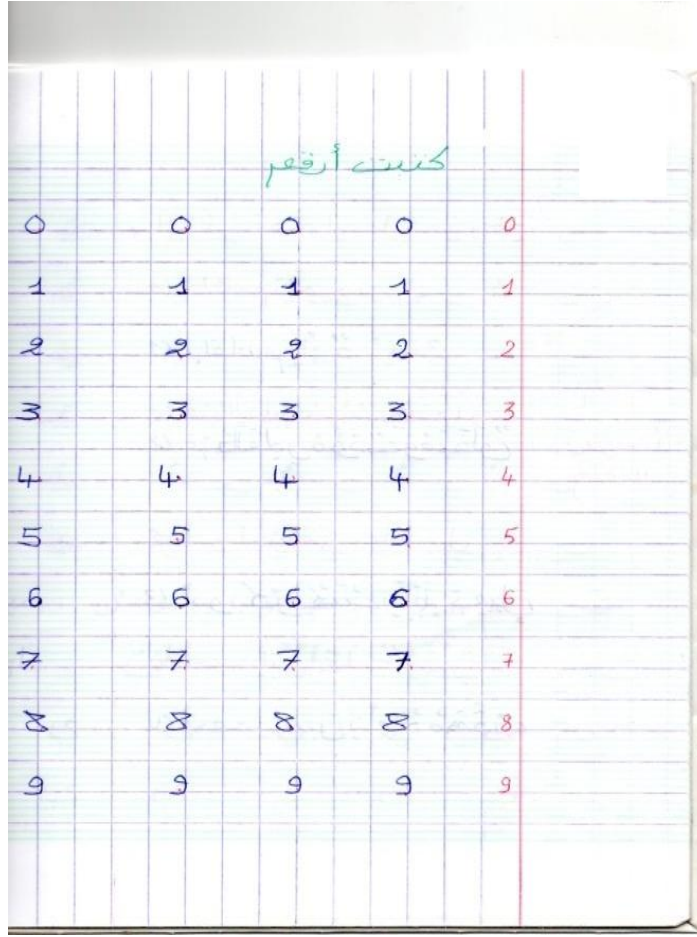 كتبت أرقم
0 0 0 0 0
1 1 1 1 1
2 2 2 2 2
3 3 3 3 3
4 4 4 4 4
5 5 5 5 5
6 6 6 6 6
7 7 7 7 7
8 8 8 8 8
9 9 9 9 9